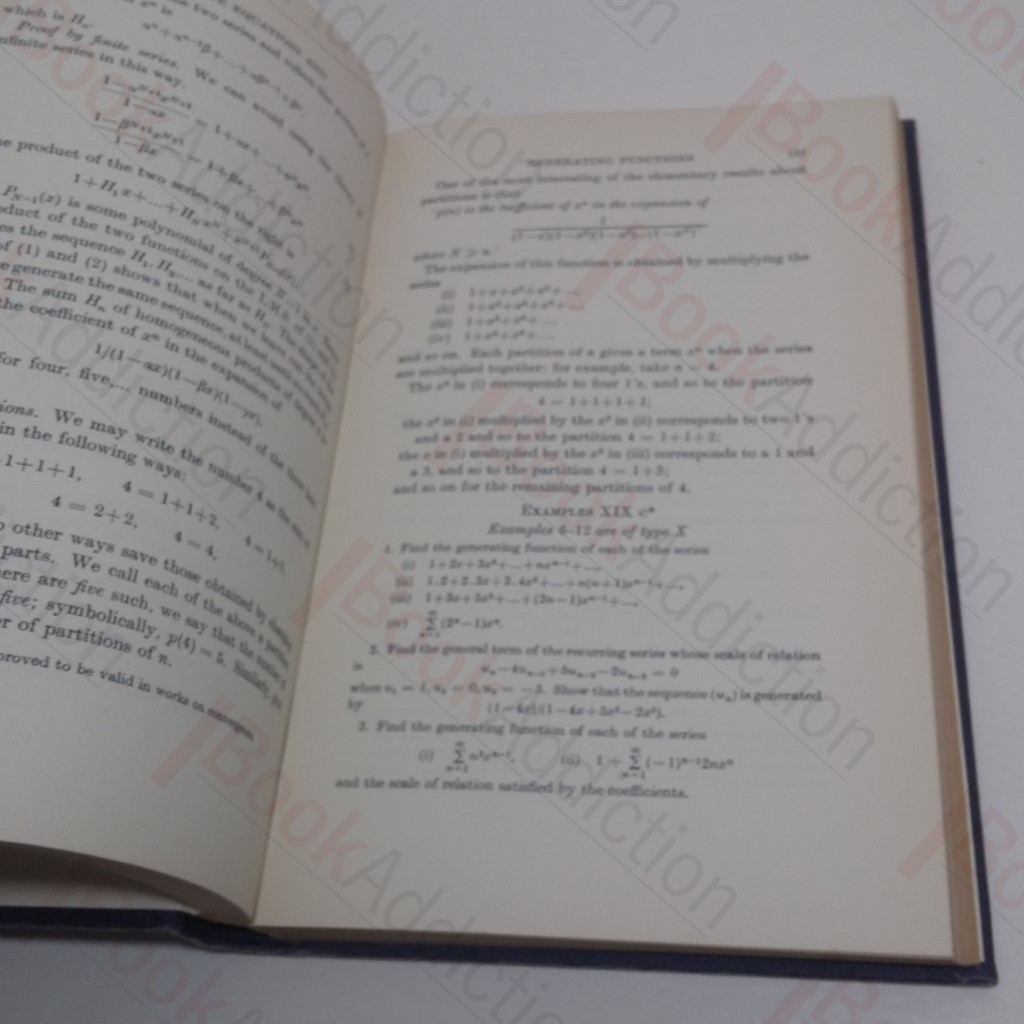 which is Hₙ.
αⁿ+αⁿ⁻¹β+...+αβⁿ⁻¹+βⁿ,
Proof by finite series. We can avoid using the theory of
infinite series in this way.
= 1+αx+...+
= 1+βx+...+
product of the two series on the right is
1+H₁x+...+
is some polynomial of degree
product of the two functions on the L.H.S. of
the sequence H₁, H₂,... as far as
of (1) and (2) shows that when we
generate the same sequence, at least
The sum Hₙ of homogeneous products of degree
the coefficient of xⁿ in the expansion of
1/(1−αx)(1−βx)(1−γx).
for four, five,... numbers instead of the
We may write the number 4 as the sum of
in the following ways:
1+1+1, 4 = 1+1+2, 4 = 1+3,
4 = 2+2, 4 = 4,
other ways save those obtained by
parts. We call each of the above a partition
there are five such, we say that the number of
five; symbolically, p(4) = 5. Similarly, p(n)
of partitions of n.
proved to be valid in works on convergence.
GENERATING FUNCTIONS
One of the most interesting of the elementary results about
partitions is that
'p(n) is the coefficient of xⁿ in the expansion of
1
(1−x)(1−x²)(1−x³)...(1−xᴺ)
where N ⩾ n.'
The expansion of this function is obtained by multiplying the
series
(i) 1+x+x²+x³+...,
(ii) 1+x²+x⁴+x⁶+...,
(iii) 1+x³+x⁶+...,
(iv) 1+x⁴+x⁸+...,
and so on. Each partition of n gives a term xⁿ when the series
are multiplied together; for example, take n = 4.
The x⁴ in (i) corresponds to four 1's, and so to the partition
4 = 1+1+1+1;
the x² in (i) multiplied by the x² in (ii) corresponds to two 1's
and a 2 and so to the partition 4 = 1+1+2;
the x in (i) multiplied by the x³ in (iii) corresponds to a 1 and
a 3, and so to the partition 4 = 1+3;
and so on for the remaining partitions of 4.
EXAMPLES XIX c*
Examples 6–12 are of type X
1. Find the generating function of each of the series
(i) 1+2x+3x²+...+nxⁿ⁻¹+...,
(ii) 1.2+2.3x+3.4x²+...+n(n+1)xⁿ⁻¹+...,
(iii) 1+3x+5x²+...+(2n−1)xⁿ⁻¹+...,
(iv) ∑(2ⁿ−1)xⁿ.
2. Find the general term of the recurring series whose scale of relation
is uₙ−4uₙ₋₁+5uₙ₋₂−2uₙ₋₃ = 0
when u₁ = 1, u₂ = 0, u₃ = −5. Show that the sequence (uₙ) is generated
by (1−4x)/(1−4x+5x²−2x³).
3. Find the generating function of each of the series
(i) ∑n²xⁿ⁻¹, (ii) 1+∑(−1)ⁿ⁻¹2nxⁿ
and the scale of relation satisfied by the coefficients.
BookAddiction